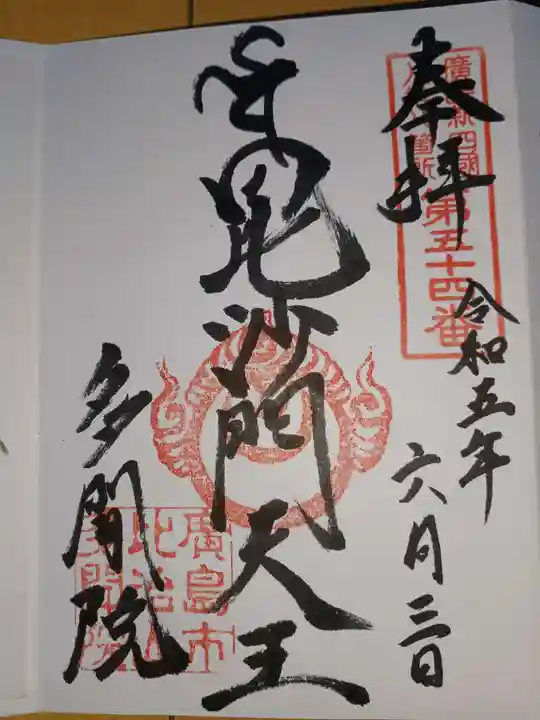 奉拝
廣島新四國八十八箇所
第五十四番
令和五年
六月三日
毘沙門天王
多聞院
廣島市
比治山
多聞院